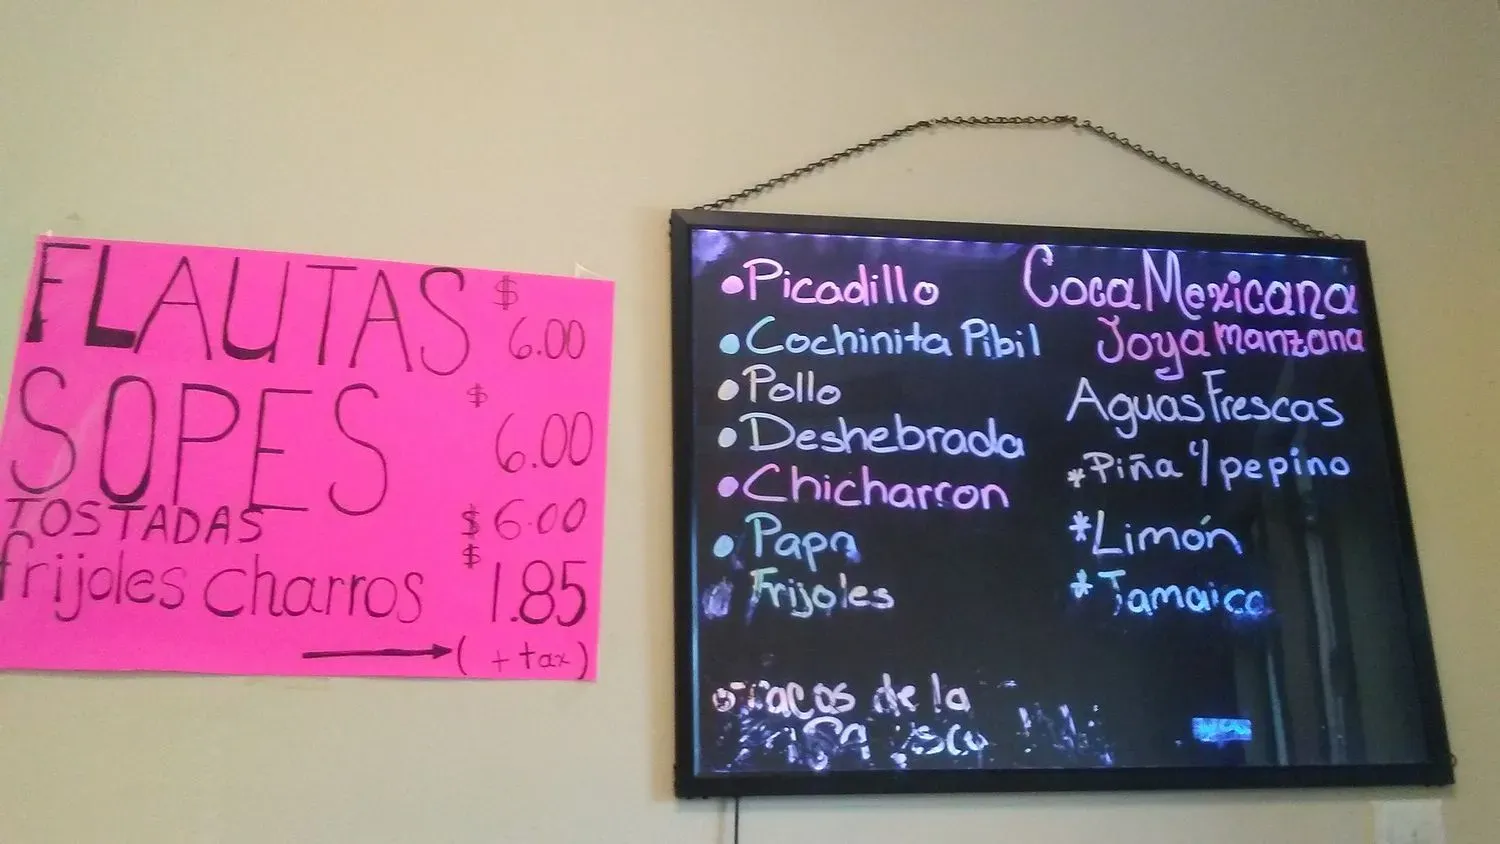 FLAUTAS $ 6.00
SOPES $ 6.00
TOSTADAS $ 6.00
frijoles charros $ 1.85
(+ tax)
Picadillo
Cochinita Pibil
Pollo
Deshebrada
Chicharron
Papa
Frijoles
Tacos de la
Coca Mexicana
Joya Manzana
Aguas Frescas
*Piña y/pepino
*Limón
*Jamaica